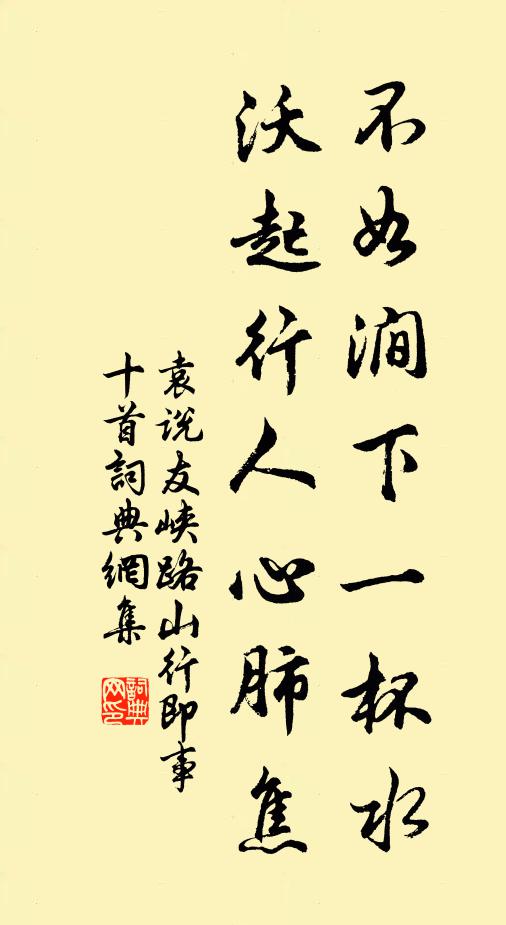 不如澗下一杯水
沃起行人心肺焦
袁説友峽路山行即事
十首詞典網集
詞典
网印